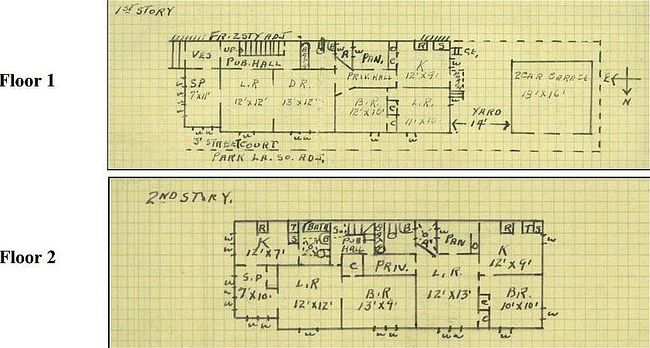 1ST STORY
Floor 1
FR. 2 STY ADJ.
VES
UP
PUB. HALL
PAN.
R S
GE.
S.P
7'X11'
L.R
12'X12'
D.R.
13'X12'
PRIV. HALL
B.R
12'X10'
K
12'X9'
L.R.
11'X10'
C
C
YARD
14'
2 CAR GARAGE
18'X16'
E
N
3' STREET COURT
PARK LA. SO. ADJ.
2ND STORY.
Floor 2
R
T
S
BATH
B
PUB
HALL
B
PAN
R
T S
K
12'X7'
K
12'X9'
S.P
7'X10'
C
PRIV.
L.R
12'X12'
B.R
13'X9'
L.R.
12'X13'
C
C
B.R.
10'X10'